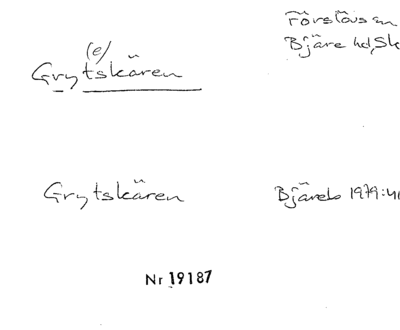 Förslövs sn
(e)
Grytskären
Bjäre hd, Sk
Grytskären
Bjärebo 1979:41
Nr 19187